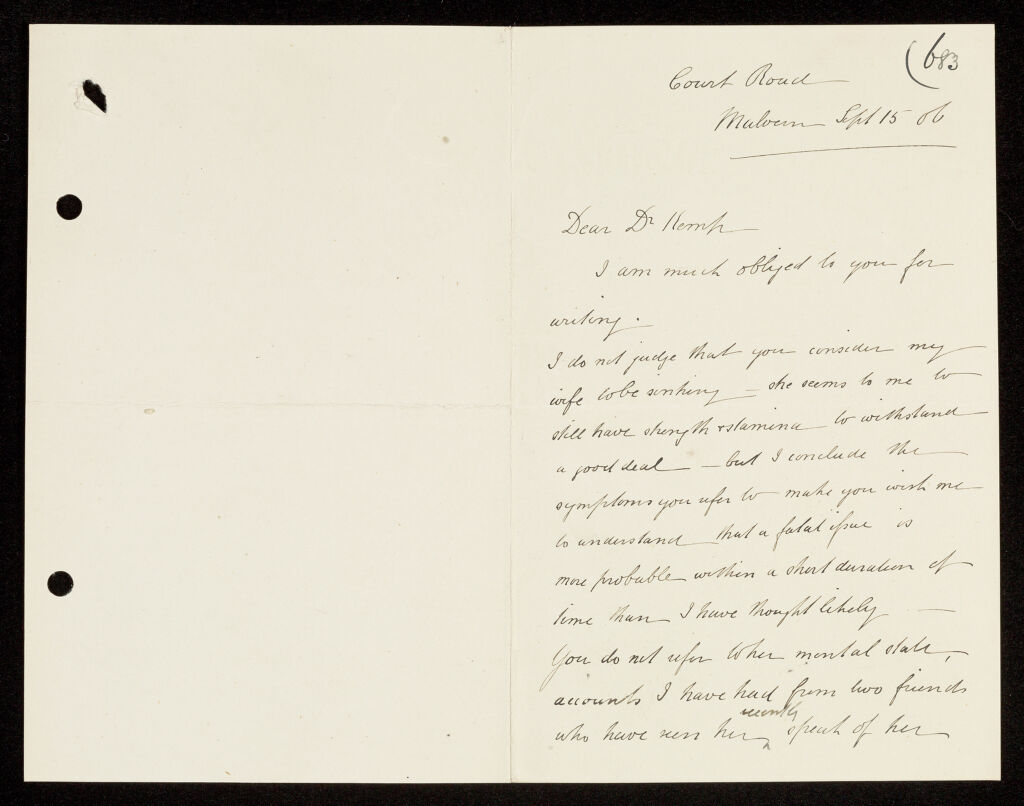 (683
Court Road
Malvern Sept 15 06
Dear Dr Kemp
I am much obliged to you for
writing.
I do not judge that you consider my
wife to be sinking – she seems to me to
still have strength & stamina to withstand
a good deal – but I conclude the
symptoms you refer to make you wish me
to understand that a fatal issue is
more probable within a short duration of
time than I have thought likely –
You do not refer to her mental state,
accounts I have had from two friends
who have seen her recently speak of her